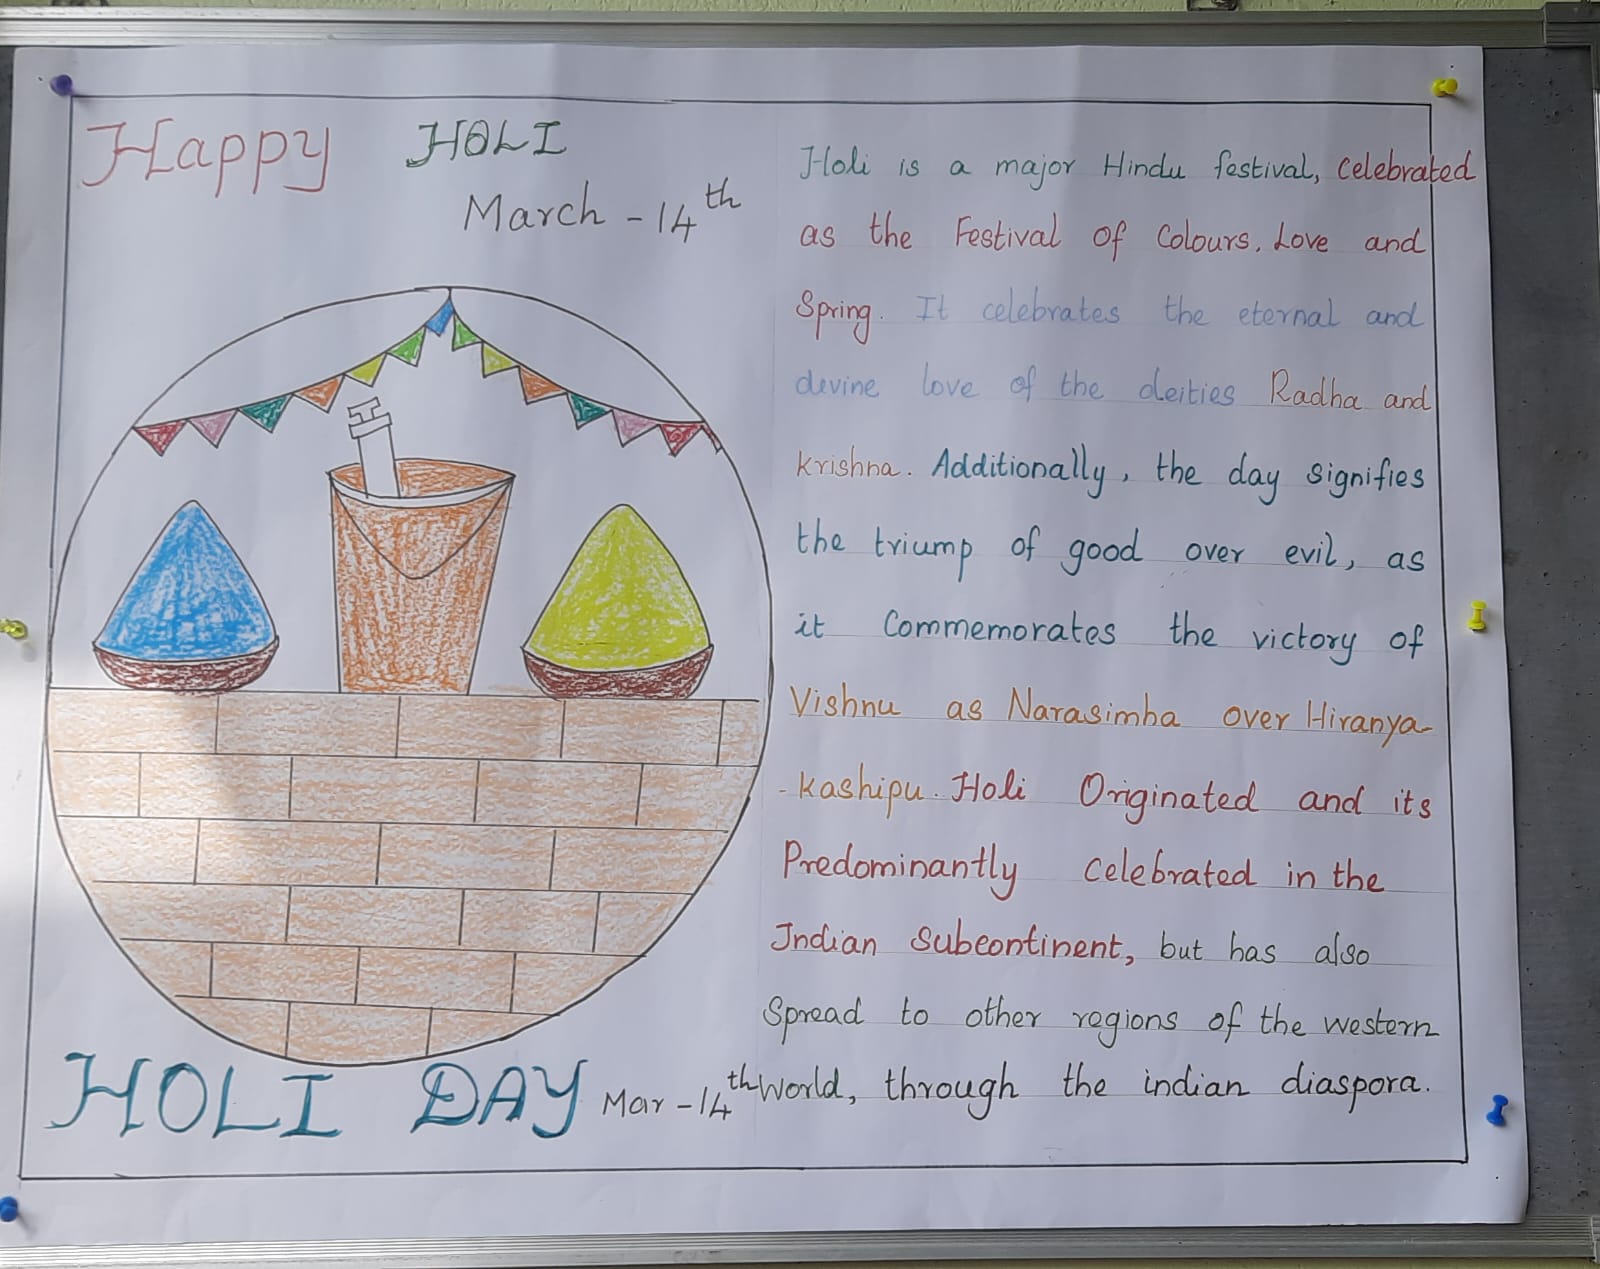 Happy HOLI
March - 14th
Holi is a major Hindu festival, celebrated
as the Festival of Colours. Love and
Spring. It celebrates the eternal and
devine love of the deities Radha and
krishna. Additionally, the day signifies
the triump of good over evil, as
it Commemorates the victory of
Vishnu as Narasimha over Hiranya-
- kashipu. Holi Originated and its
Predominantly celebrated in the
Indian Subcontinent, but has also
Spread to other regions of the western
World, through the indian diaspora.
HOLI DAY Mar - 14th